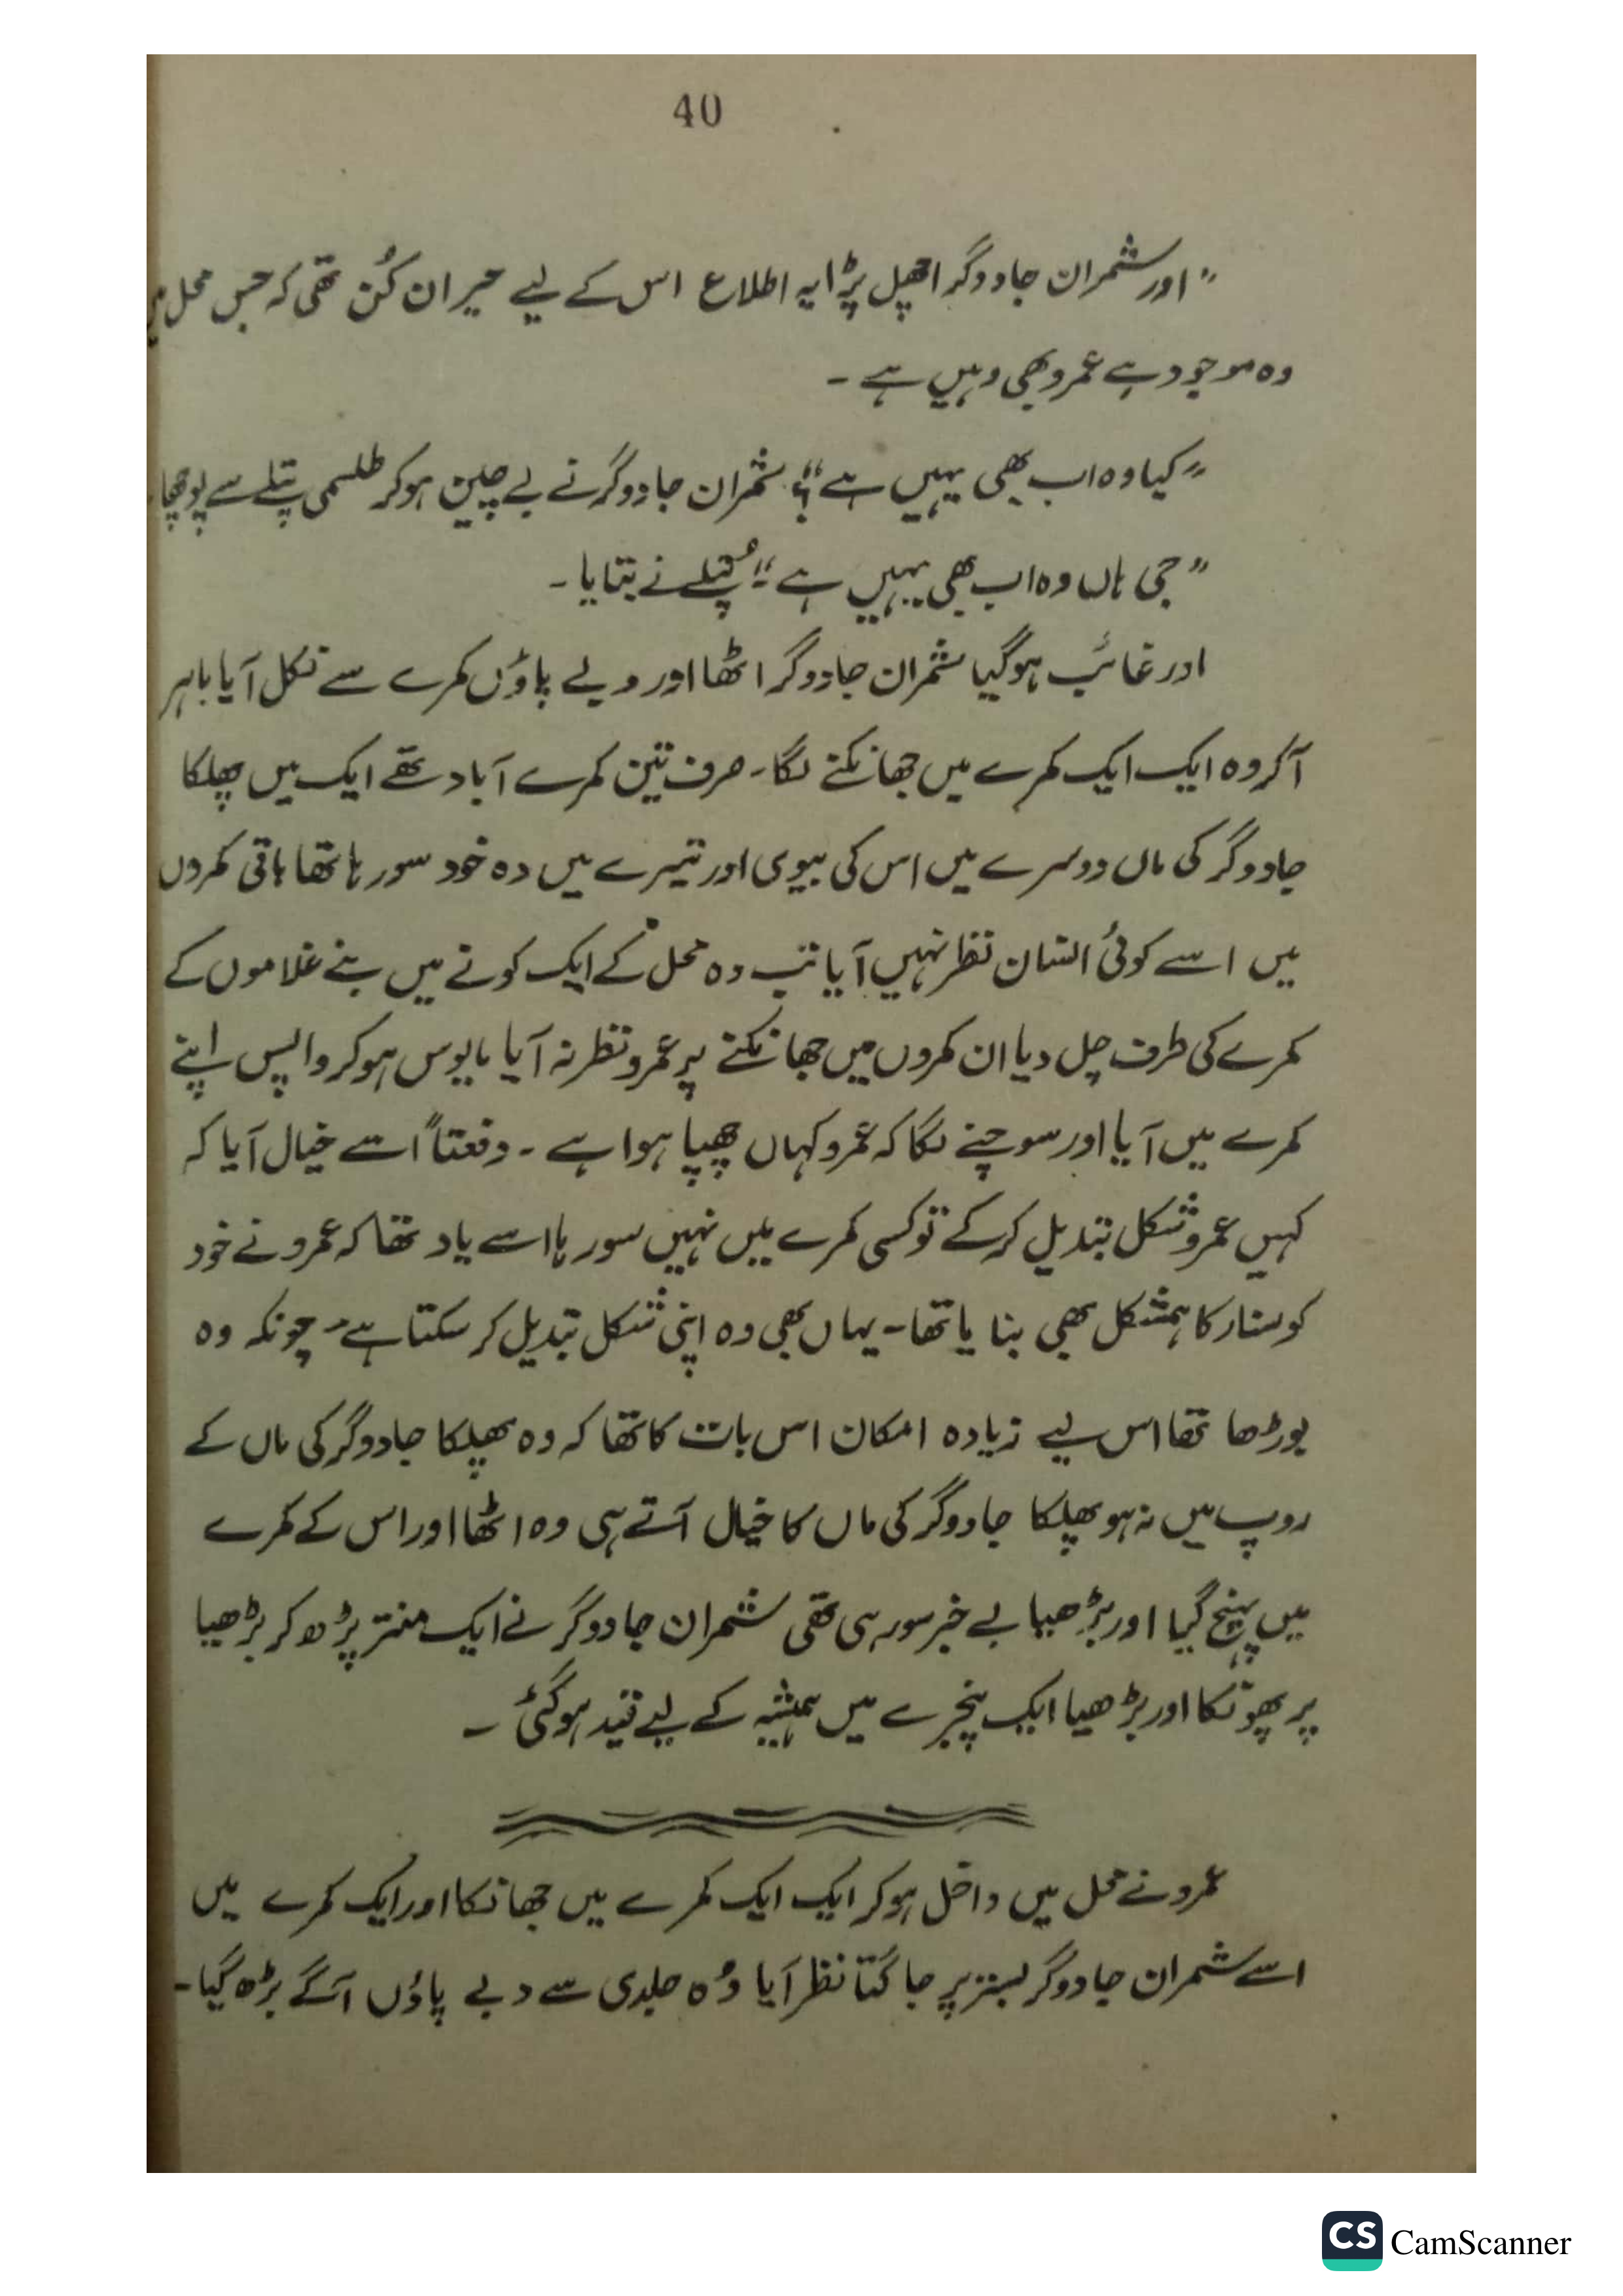 40
"اور شمران جادوگر اچھل پڑا یہ اطلاع اس کے لیے حیران کُن تھی کہ جس محل میں
وہ موجود ہے عمرو بھی وہیں ہے ۔
"کیا وہ اب بھی یہیں ہے"؟ شمران جادوگر نے بے چین ہو کر طلسمی پتلے سے پوچھا
"جی ہاں وہ اب بھی یہیں ہے"۔ پُتلے نے بتایا ۔
اور غائب ہو گیا شمران جادوگر اٹھا اور دبے پاؤں کمرے سے نکل آیا باہر
آکر وہ ایک ایک کمرے میں جھانکنے لگا ۔ صرف تین کمرے آباد تھے ایک میں پھلکا
جادوگر کی ماں دوسرے میں اس کی بیوی اور تیسرے میں وہ خود سو رہا تھا باقی کمروں
میں اسے کوئی انسان نظر نہیں آیا تب وہ محل کے ایک کونے میں بنے غلاموں کے
کمرے کی طرف چل دیا ان کمروں میں جھانکنے پر عمرو نظر نہ آیا مایوس ہو کر واپس اپنے
کمرے میں آیا اور سوچنے لگا کہ عمرو کہاں چھپا ہوا ہے ۔ دفعتاً اسے خیال آیا کہ
کہیں عمرو شکل تبدیل کر کے تو کسی کمرے میں نہیں سو رہا اسے یاد تھا کہ عمرو نے خود
کو ستار کا ہمشکل بھی بنا یا تھا ۔ یہاں بھی وہ اپنی شکل تبدیل کر سکتا ہے ۔ چونکہ وہ
بوڑھا تھا اس لیے زیادہ امکان اس بات کا تھا کہ وہ پھلکا جادوگر کی ماں کے
روپ میں نہ ہو پھلکا جادوگر کی ماں کا خیال آتے ہی وہ اٹھا اور اس کے کمرے
میں پہنچ گیا اور بڑھیا بے خبر سو رہی تھی شمران جادوگر نے ایک منتر پڑھ کر بڑھیا
پر پھونکا اور بڑھیا ایک پنجرے میں ہمیشہ کے لیے قید ہو گئی ۔
عمرو نے محل میں داخل ہو کر ایک ایک کمرے میں جھانکا اور ایک کمرے میں
اسے شمران جادوگر بستر پر جاگتا نظر آیا وُہ جلدی سے دبے پاؤں آگے بڑھ گیا ۔
CS CamScanner